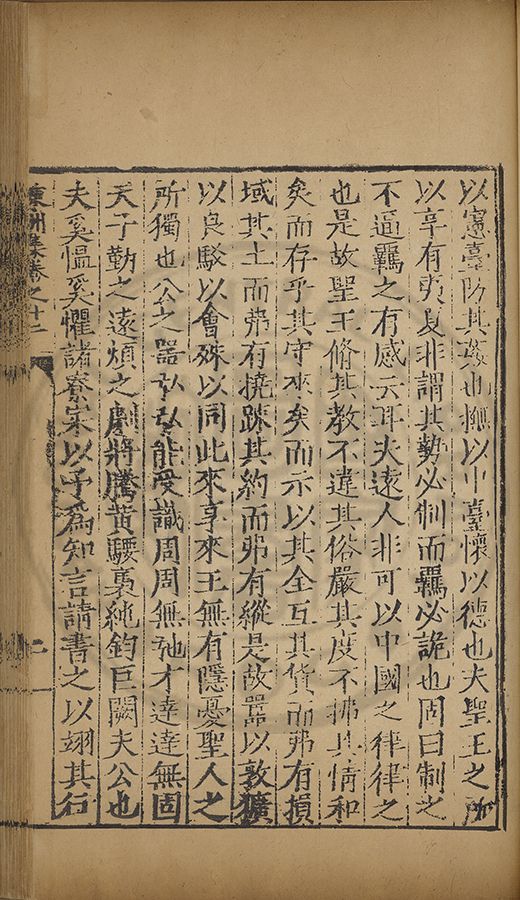 以憲臺防其姦也撫以中臺懷以德也夫聖王之所
以享有夷夏非謂其勢必制而羈必詭也固曰制之
不逼羈之有感云耳夫遠人非可以中國之律律之
也是故聖王脩其教不違其俗嚴其度不拂其情和
矣而存乎其守來矣而示以其全互其貨而弗有損
域其土而弗有撓踈其約而弗有縱是故嚣以敦獷
以良駁以會殊以同此來享來王無有隱憂聖人之
所獨也公之器弘弘能受識周周無弛才達達無固
天子勤之遠煩之劇將騰黃騕褭純鈞巨闕夫公也
夫奚慍奚懼諸寮寀以予為知言請書之以翊其行
集卷之十二
二